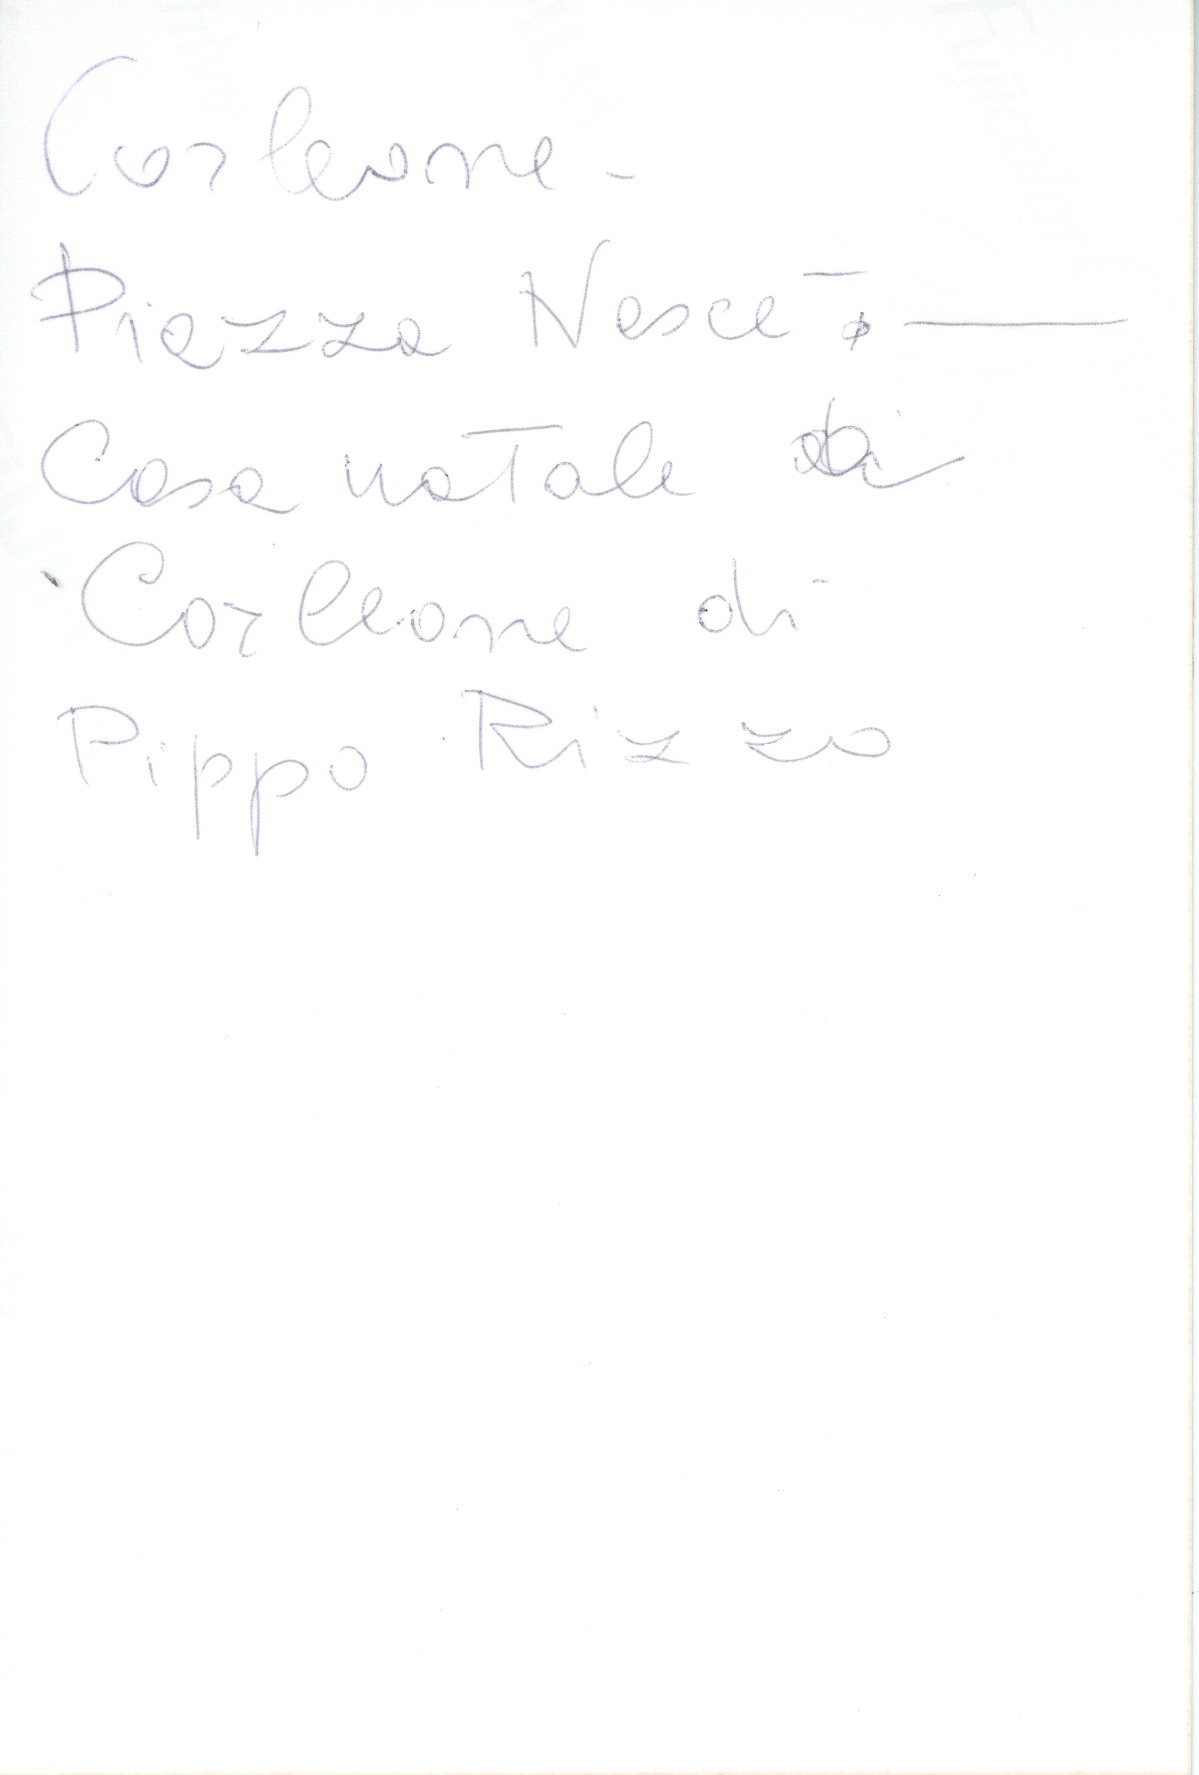 Corleone -
Piazza Nascè. —
Casa natale di
Corleone di
Pippo Rizzo